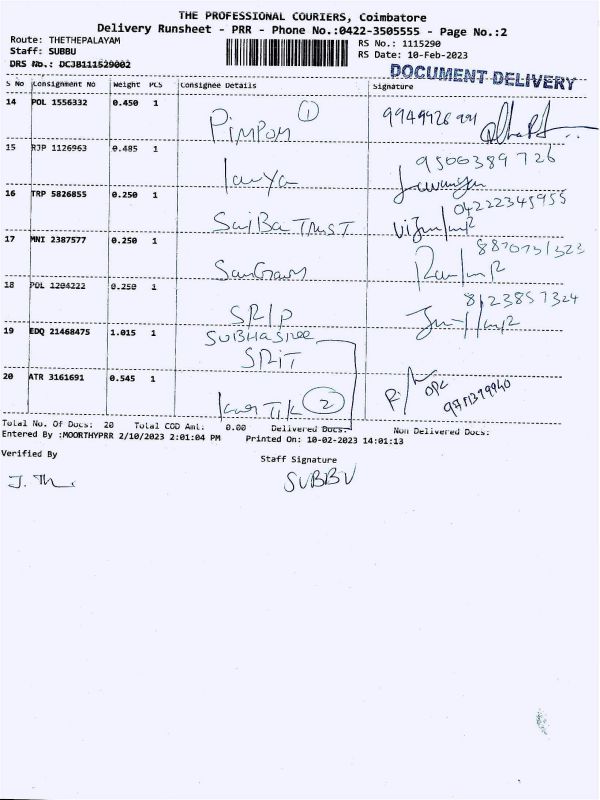 THE PROFESSIONAL COURIERS, Coimbatore
Delivery Runsheet - PRR - Phone No.:0422-3505555 - Page No.:2
Route: THETHEPALAYAM
RS No.: 1115290
Staff: SUBBU
RS Date: 10-Feb-2023
DRS No.: DCJB111529002
DOCUMENT DELIVERY
S No Consignment No Weight PCS Consignee Details Signature
14 POL 1556332 0.450 1
1
PIMPOM
15 RJP 1126963 0.485 1
9500389726
Lavanya
16 TRP 5826855 0.250 1
04222345955
SaiBa TRUST
17 MNI 2387577 0.250 1
18 POL 1204222 0.250 1
8123857324
19 EDQ 21468475 1.015 1
SUBHASREE
SRIT
20 ATR 3161691 0.545 1
2
Total No. Of Docs: 20 Total COD Amt: 0.00 Delivered Docs: Non Delivered Docs:
Entered By :MOORTHYPRR 2/10/2023 2:01:04 PM Printed On: 10-02-2023 14:01:13
Verified By
Staff Signature
SUBBU